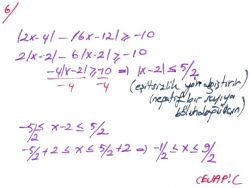 6/
|2x-4| - |6x-12| ≥ -10
2|x-2| - 6|x-2| ≥ -10
-4|x-2| ≥ -10 ⇒ |x-2| ≤ 5/2
-4 -4
(eşitsizlik yön değiştirir)
(negatif bir sayıya
-5/2 ≤ x-2 ≤ 5/2
-5/2+2 ≤ x ≤ 5/2+2 ⇒ -1/2 ≤ x ≤ 9/2
CEVAP: C